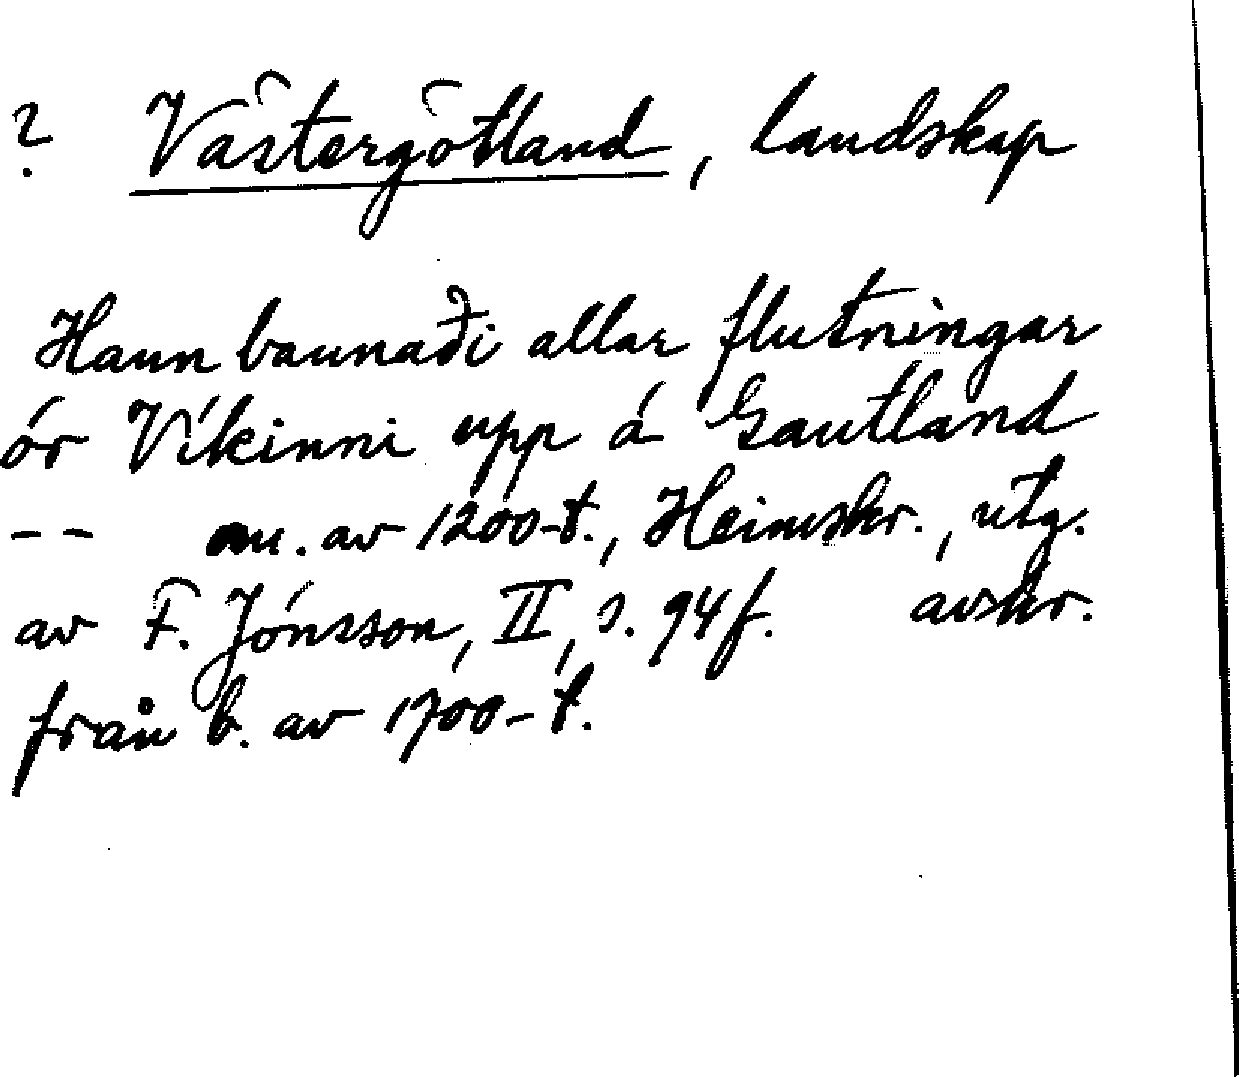 ? Västergötland, landskap
Hann bannaði allar flutningar
ór Víkinni upp á Gautland
-- av 1200-t., Heimskr., utg.
av F. Jónsson, II, s. 94f. avskr.
från b. av 1700-t.